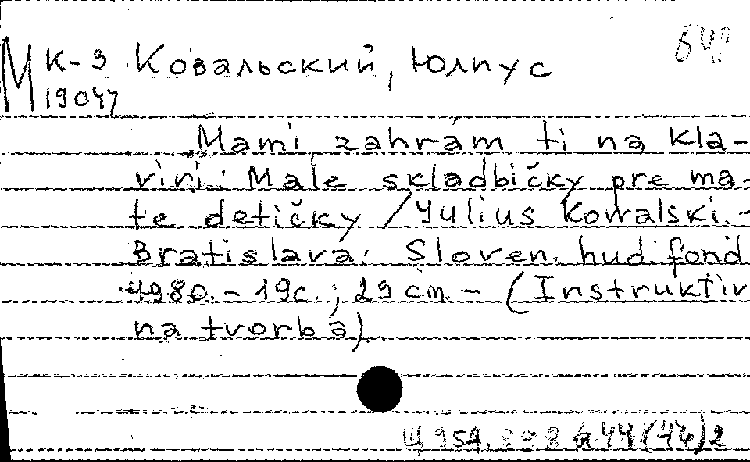 М К-3 Ковальский, Юлиус
19047
Mami, zahrám ti na kla-
víri: Malé skladbičky pre ma-
lé detičky / Julius Kowalski. -
Bratislava: Sloven. hud. fond
1980. - 19с.; 29 cm. - (Instruktív
na tvorba)